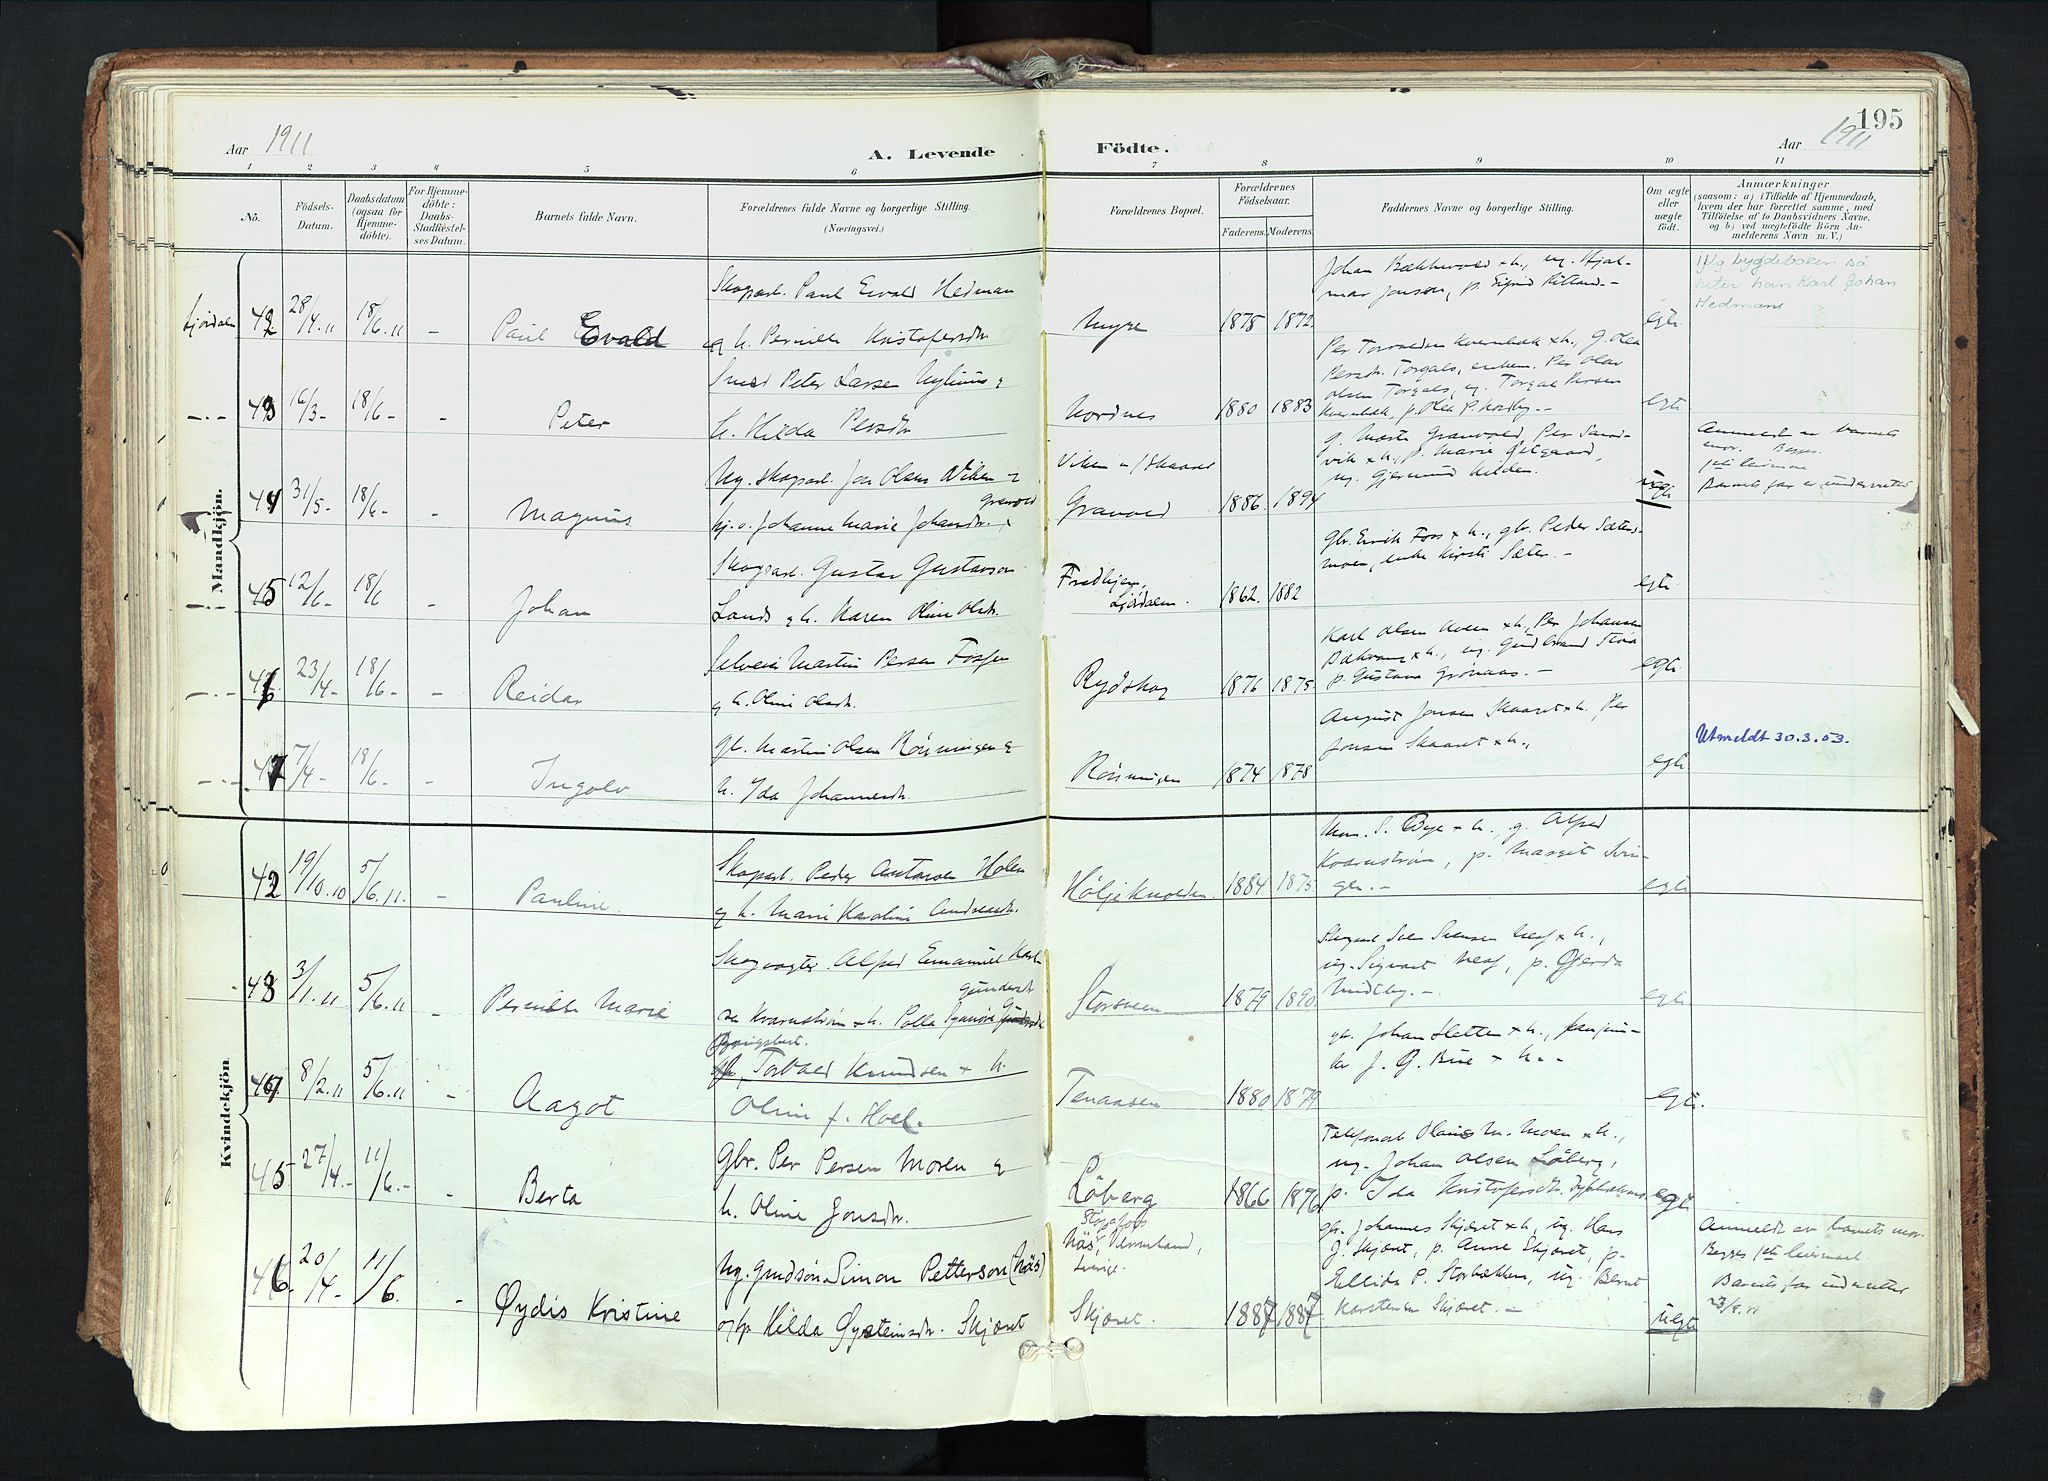 195
Aar 1911
A. Levende Födte.
Aar 1911
1 2 3 4 5 6 7 8 9 10 11
No.
Födsels-Datum.
Daabsdatum (ogsaa for Hjemme-döbte).
For Hjemme-döbte: Daabs-Stadfæstel-ses Datum.
Barnets fulde Navn.
Forældrenes fulde Navne og borgerlige Stilling.
(Næringsvei.)
Forældrenes Bopæl.
Forældrenes Födselsaar.
Faderens. Moderens.
Faddernes Navne og borgerlige Stilling.
Om ægte eller uægte födt.
Anmærkninger
(saasom: a) i Tilfælde af Hjemmedaab,
hvem der har forrettet samme, med
Tilföielse af to Daabsvidners Navne,
og b) ved uægtefödte Börn An-
melderens Navn m. V.)
Mandkjön.
Ljørdalen 42 28/4.11 18/6.11 - Paul Evald
Skogsarb. Paul Evald Hedman
og h. Pernille Kristofersdtr.
Myre 1878 1872
Johan Bækkevold + h., ug. Hjal-
mar Jonsen, p. Sigrid
egte
byggeboken så
heter han Karl Johan
Hedmann
-.- 43 16/3- 18/6- - Peter
Smed Peter Larsen Nylund &
h. Hilda Persdtr
Nordnes 1880 1883
Per Torvaldsen Kvernbæk + h., g. Olea
Persdtr. Torgals, enkem. Per Olav
Olsen Torgals, ug. Torgal Persen
Kvernbæk, p. Olea P. Nordby.-
egte
-.- 44 31/5- 18/6- - Magnus
Ug. skogsarb. Jon Olsen Viken &
pj. o. Johanne Marie Johansdtr. Granvold
Viken i Skaaret
Granvold 1886. 1894
g. Marte Granvold, Per Sand-
vik + h., p. Marie
ug. Gjermund Kilden.
uegte
Anmeldt av barnets
mor. Begges
1ste leiermaal
Barnets far er underrettet
-.- 45 12/6- 18/6 - Johan
Skogsarb. Gustav Gustavson
Lands & h. Karen Oline Olsdtr.
Fredhjem,
Ljørdalen. 1862. 1882
gbr. Eirik Foss + h., gbr. Peder Sæters-
moen, enke Kirsti Sæter.-
egte
-.- 46 23/4- 18/6- - Reidar
Selveier Martin Persen Fossen
& h. Oline Olsdtr.
Rydskog 1876 1875.
Karl Olsen Moen + h., Per Johansen
Bækvang + h., ug. Gudbrand
p. Gustava Grönaas.-
egte
-.- 47 7/4- 18/6- - Ingolv
gbr. Martin Olsen Rönningen &
h. Ida Johannesdtr.
Rönningen 1874 1878
August Jonsen Skaaret + h., Per
Jonsen Skaaret + h.,
egte
Utmeldt 30.3.53.
Kvindekjön
42 19/10.10 5/6.11. - Pauline
Skogsarb. Peder Antonsen Holen
& h. Marie Karoline Andreasdtr.
Höljeknolden. 1884 1875.
S. Bye + h., g. Alfred
Kvarnström, p. Margit
egte
43 3/1.11 5/6.11 - Pernille Marie
Skogvogter Alfred Emanuel Karl-
sen Kvarnström + h. Palla Gundersdtr
Storsveen 1879 1890.
Skogsarb. Sven Svensen Næs + h.,
ug. Sigvart Næs, p. Gjerda
Midtby.-
egte
44 8/2.11 5/6.11 - Aagot
Torvald Knudsen + h.
Oline f. Hoel.
Tenaasen 1880 1879
gbr. Johan Sletten + h.,
J. G. Bue + h.-
egte.
45 27/4.- 11/6.- - Berta
Gbr. Per Persen Moren &
h. Oline Jonsdtr.
Löberg 1866 1876
Telefonarb. Olaus M. Moen + h.,
ug. Johan Olsen Löberg,
p. Ida Kristofersdtr.
egte
46 20/4- 11/6. - Øydis Kristine
Ug. Simon Petterson (Näs)
o/p Hilda Øysteinsdtr. Skjæret
Näs, Vermland,
Sverige.
Skjæret. 1887 1887
gbr. Johannes Skjæret + h., ug. Hans
J. Skjæret, p. Anne Skjæret, p.
Ellida P. Storbækken, ug. Bernt
Karstensen Skjæret.-
uegte
Anmeldt av barnets mor.
Begges 1ste leiermaal.
Barnets far underrettet
23/8.11